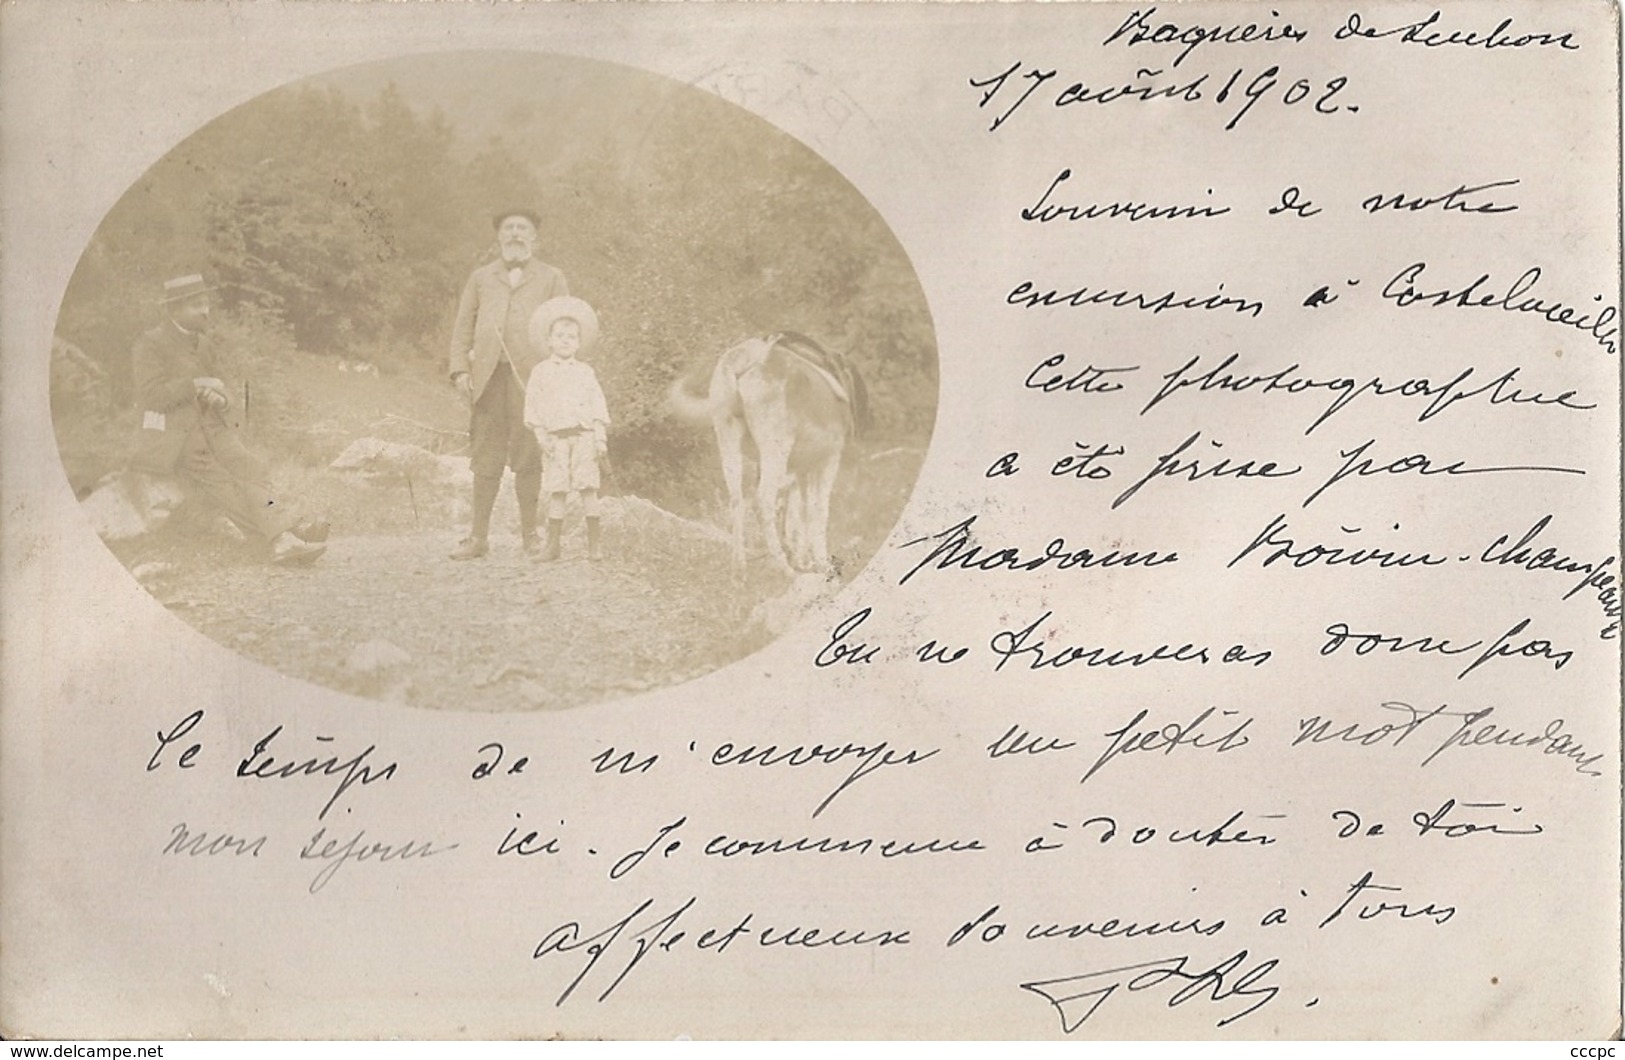 Bagnères de Luchon
17 août 1902.
Souvenir de notre
excursion à Castelvieilh
Cette photographie
a été prise par
Madame Boivin-Champeaux
Tu ne trouveras donc pas
le temps de m'envoyer un petit mot pendant
mon séjour ici. Je commence à douter de toi
affectueux souvenirs à tous
www.delcampe.net
cccpc